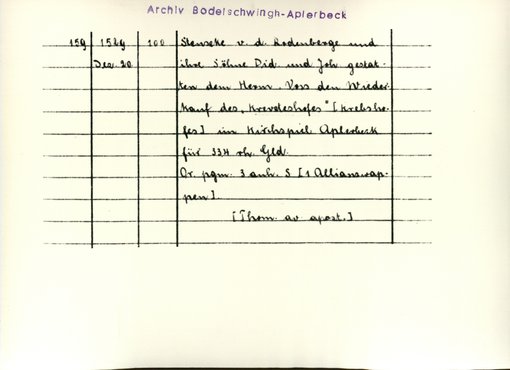 Archiv Bodelschwingh-Aplerbeck
159 1529 100 Stenseke v. d. Rodenberge und
Dez. 20 ihre Söhne Did. und Joh. gestat-
ten dem Herm. Voss den Wieder-
kauf des „Krevdeshofes" [Krebsho-
fes] im Kirchspiel Aplerbeck
für 334 rh. Gld.
Or. pgm. 3 anh. S [1 Allianswap-
pen].
[Thom. av. apost.]